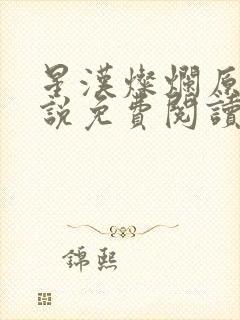 星漢燦爛原
說免費閱讀
錦熙